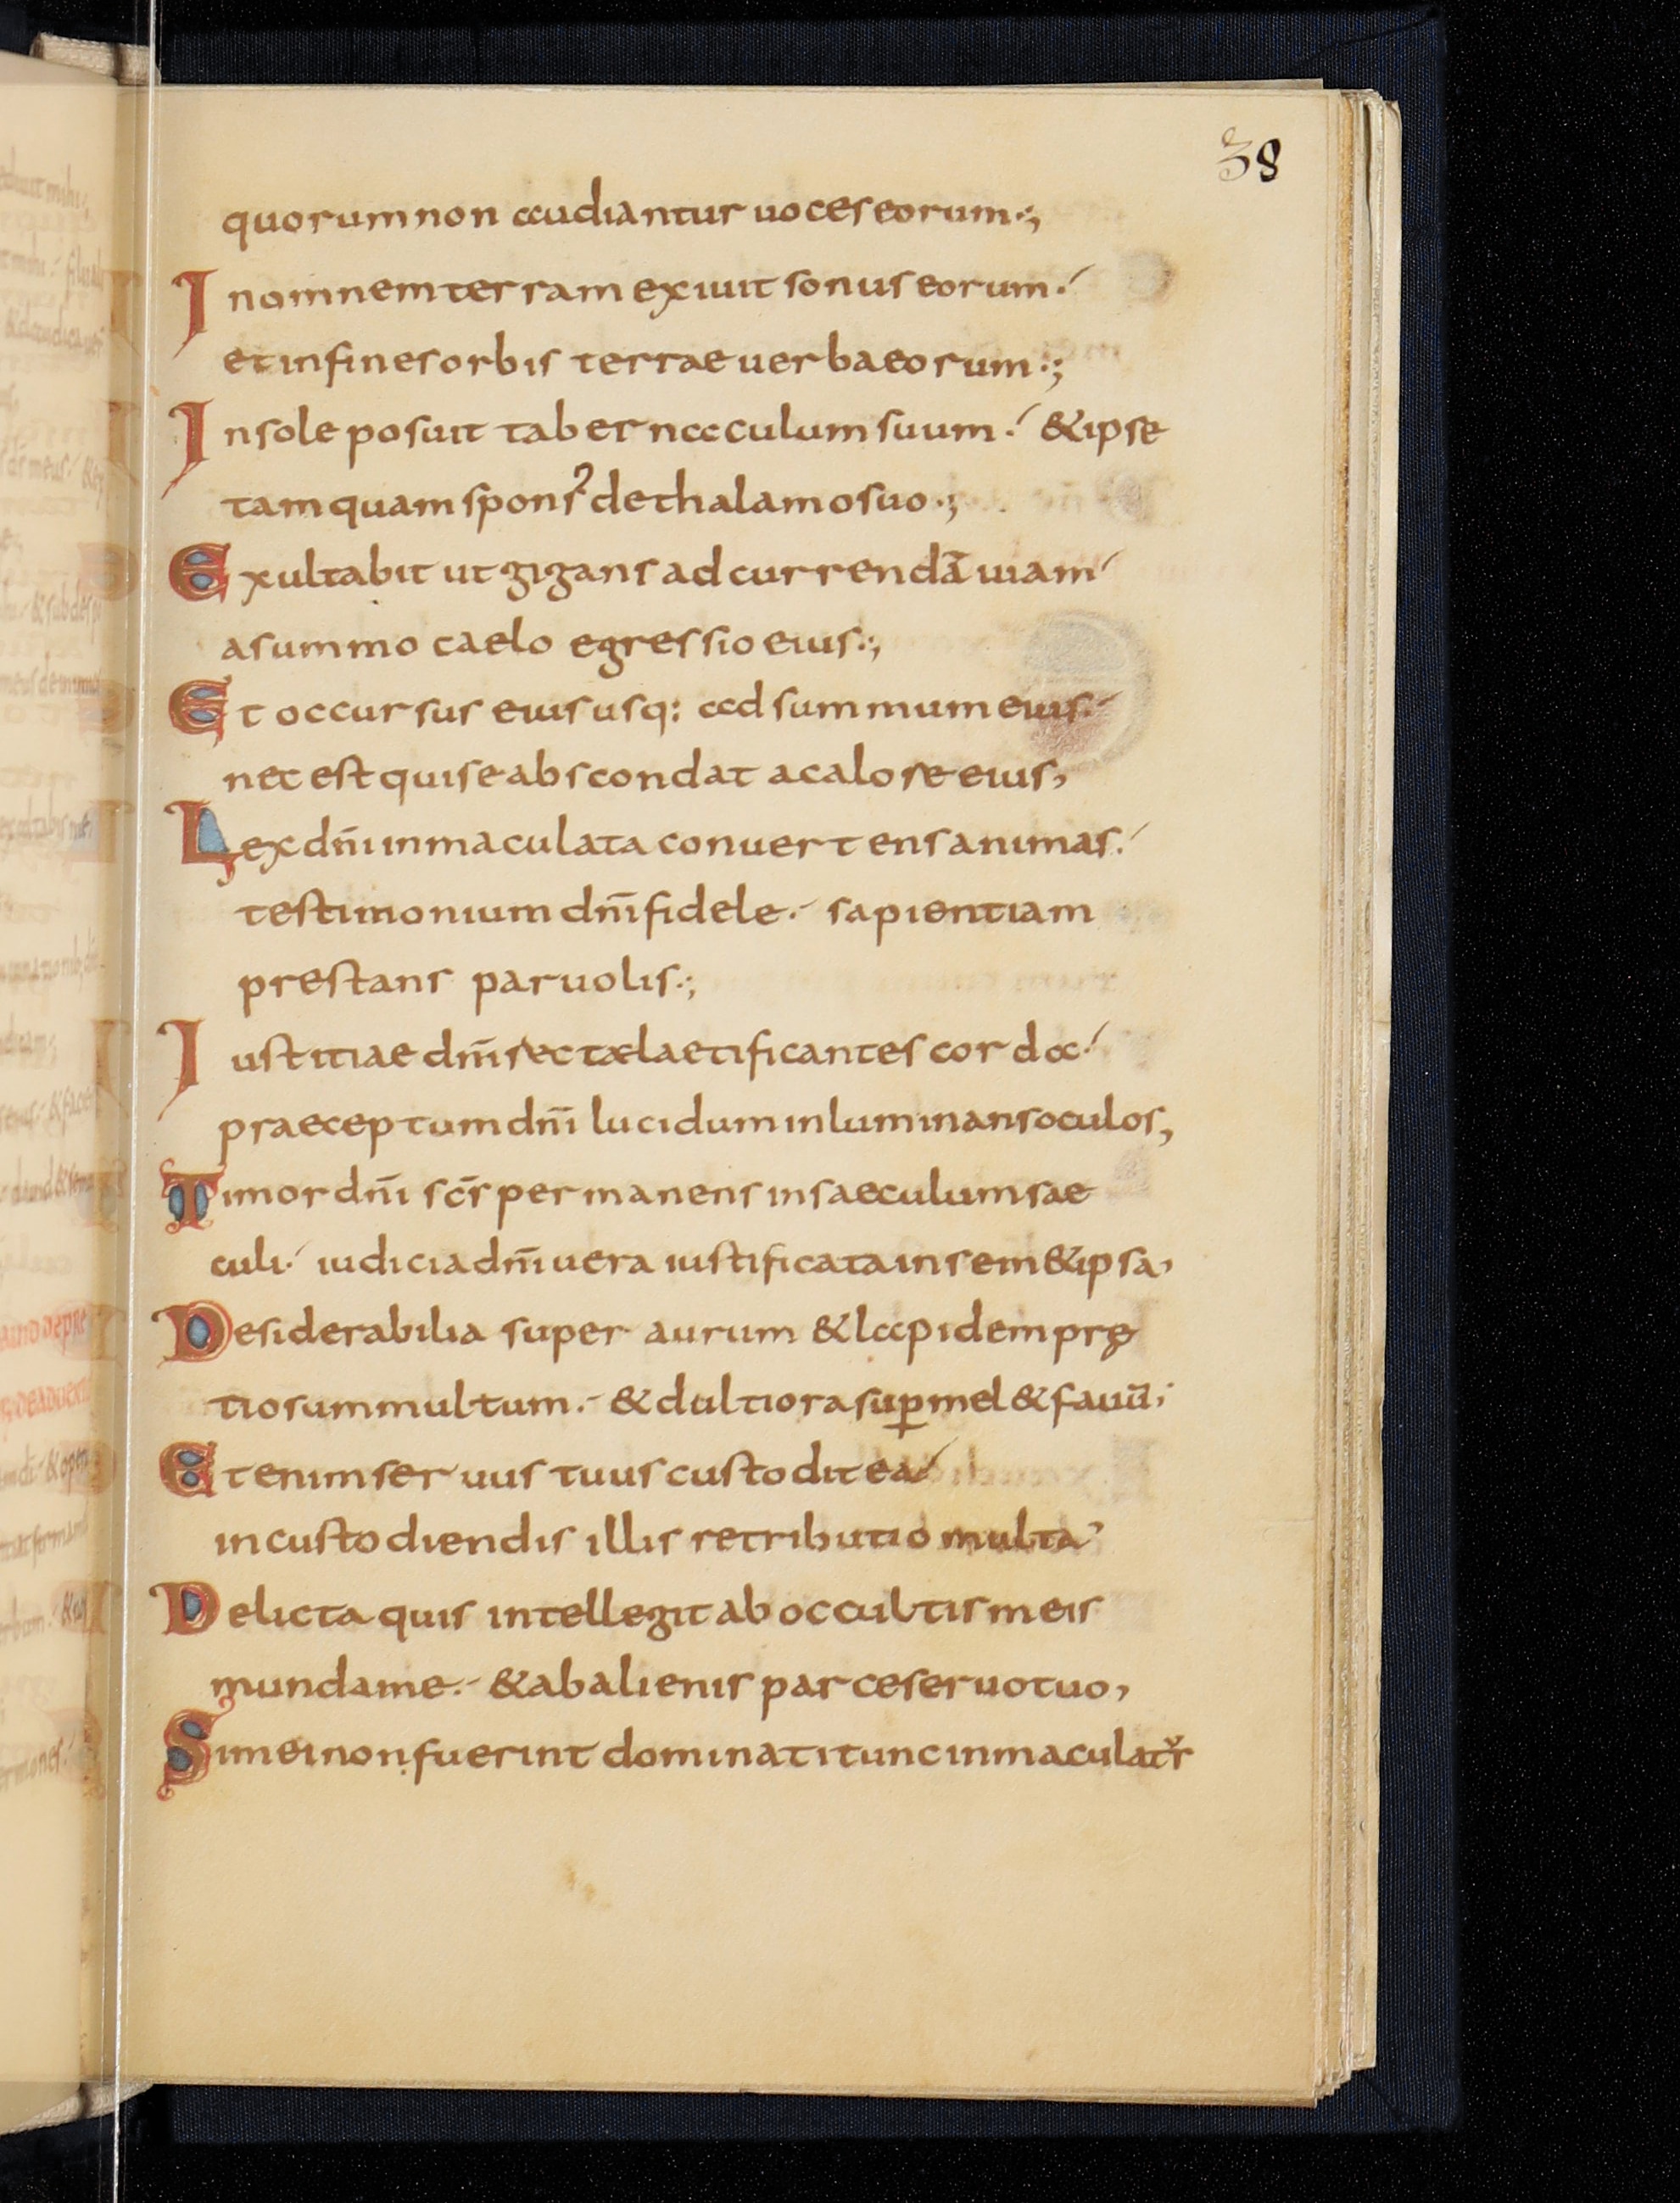 38
quorum non audiantur uoces eorum.;
In omnem terram exiuit sonus eorum./
et in fines orbis terrae uerba eorum.;
In sole posuit tabernaculum suum./ & ipse
tamquam spons᾽ de thalamo suo.;
Exultabit ut gigans ad currendā uiam/
a summo caelo egressio eius.;
Et occursus eius usq: ad summum eius.
nec est qui se abscondat a calore eius,
Lex dn̄i inmaculata conuertens animas./
testimonium dn̄i fidele. sapientiam
prestans paruolis.;
Iustitiae dn̄i rectae laetificantes corda./
praeceptum dn̄i lucidum inluminans oculos,
Timor dn̄i sc̄s permanens in saeculum sae
culi. iudicia dn̄i uera iustificata in sem&ipsa,
Desiderabilia super aurum & lapidem prę
tiosum multum. & dulciora sup̱ mel & fauū;
Etenim seruus tuus custodit ea/
in custodiendis illis retributio multa
Delicta quis intellegit ab occultis meis
munda me. & ab alienis parce seruo tuo,
Si mei non fuerint dominati tunc inmaculatͮs